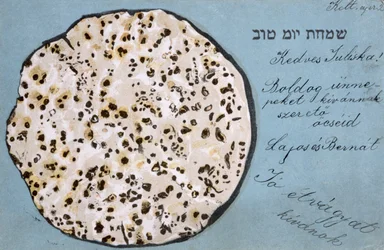 שמחת יום טוב
Kedves Juliska!
Boldog ünne-
peket kívánnak
szerető
öcséid
Lajos és Bernát
Jó étvágyat
kívánok